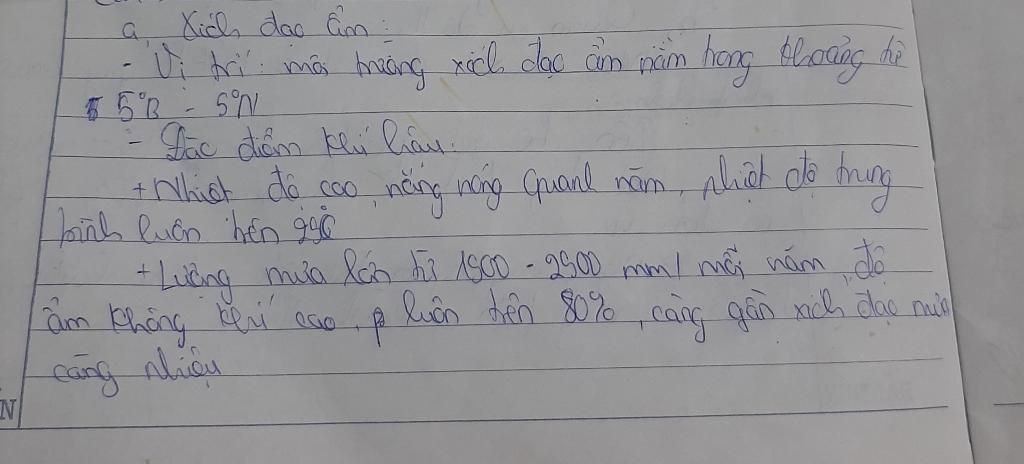 a, Xích đạo ẩm:
- Vị trí: môi trường xích đạo ẩm nằm trong khoảng từ
5°B - 5°N
- Đặc điểm khí hậu:
+ Nhiệt độ cao, nắng nóng quanh năm, nhiệt độ trung
bình luôn trên
+ Lượng mưa lớn từ 1500 - 2500 mm/ mỗi năm, độ
ẩm không khí cao, luôn trên 80%, càng gần xích đạo mưa
càng nhiều
N